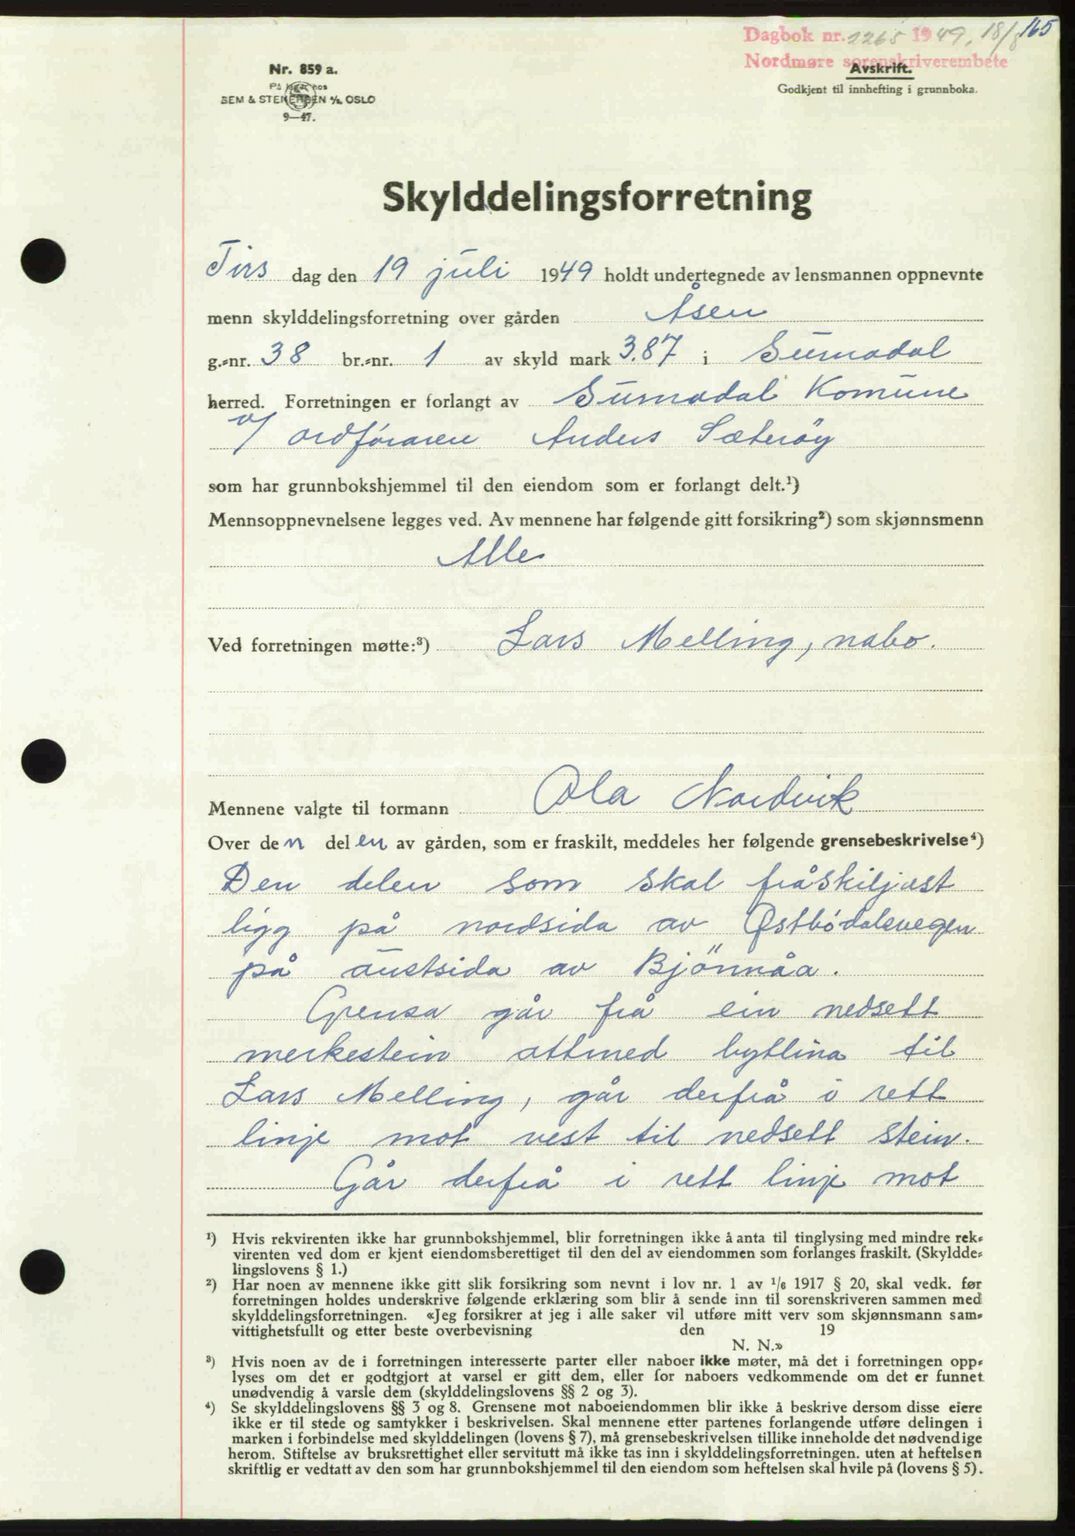 165
Dagbok nr. 2265 1949, 18/8
Nordmøre sorenskriverembete
Avskrift.
Godkjent til innhefting i grunnboka.
Nr. 859 a.
På lager hos
SEM & STENERSEN A/S, OSLO
9—47.
Skylddelingsforretning
Tirsdag den 19 juli 1949 holdt undertegnede av lensmannen oppnevnte
menn skylddelingsforretning over gården Åsen
g.-nr. 38 br.-nr. 1 av skyld mark 3.87 i Surnadal
herred. Forretningen er forlangt av Surnadal Komune
v/ ordføraren Anders Sæterøy
som har grunnbokshjemmel til den eiendom som er forlangt delt.¹)
Mennsoppnevnelsene legges ved. Av mennene har følgende gitt forsikring²) som skjønnsmenn
Alle
Ved forretningen møtte:³) Lars Melling, nabo.
Mennene valgte til formann Ola Nordvik
Over den delen av gården, som er fraskilt, meddeles her følgende grensebeskrivelse⁴)
Den delen som skal fråskiljast
ligg på nordsida av Østbødalsvegen
på austsida av Bjönnåa.
Grensa går frå ein nedsett
merkestein attmed bytlina til
Lars Melling, går derfrå i rett
linje mot vest til nedsett stein.
Går derfrå i rett linje mot
¹) Hvis rekvirenten ikke har grunnbokshjemmel, blir forretningen ikke å anta til tinglysing med mindre rek-
virenten ved dom er kjent eiendomsberettiget til den del av eiendommen som forlanges fraskilt. (Skyldde-
lingslovens § 1.)
²) Har noen av mennene ikke gitt slik forsikring som nevnt i lov nr. 1 av ¹/₆ 1917 § 20, skal vedk. før
forretningen holdes underskrive følgende erklæring som blir å sende inn til sorenskriveren sammen med
skylddelingsforretningen. «Jeg forsikrer at jeg i alle saker vil utføre mitt verv som skjønnsmann sam-
vittighetsfullt og etter beste overbevisning den 19
N. N.»
³) Hvis noen av de i forretningen interesserte parter eller naboer ikke møter, må det i forretningen opp-
lyses om det er godtgjort at varsel er gitt dem, eller for naboers vedkommende om det er funnet
unødvendig å varsle dem (skylddelingslovens §§ 2 og 3).
⁴) Se skylddelingslovens §§ 3 og 8. Grensene mot naboeiendommen blir ikke å beskrive dersom disse eiere
ikke er til stede og samtykker i beskrivelsen. Skal mennene etter partenes forlangende utføre delingen i
marken i forbindelse med skylddelingen (lovens § 7), må grensebeskrivelsen tillike inneholde det nødvendige
herom. Stiftelse av bruksrettighet eller servitutt må ikke tas inn i skylddelingsforretningen, uten at heftelsen
skriftlig er vedtatt av den som har grunnbokshjemmel til den eiendom som heftelsen skal hvile på (lovens § 5).